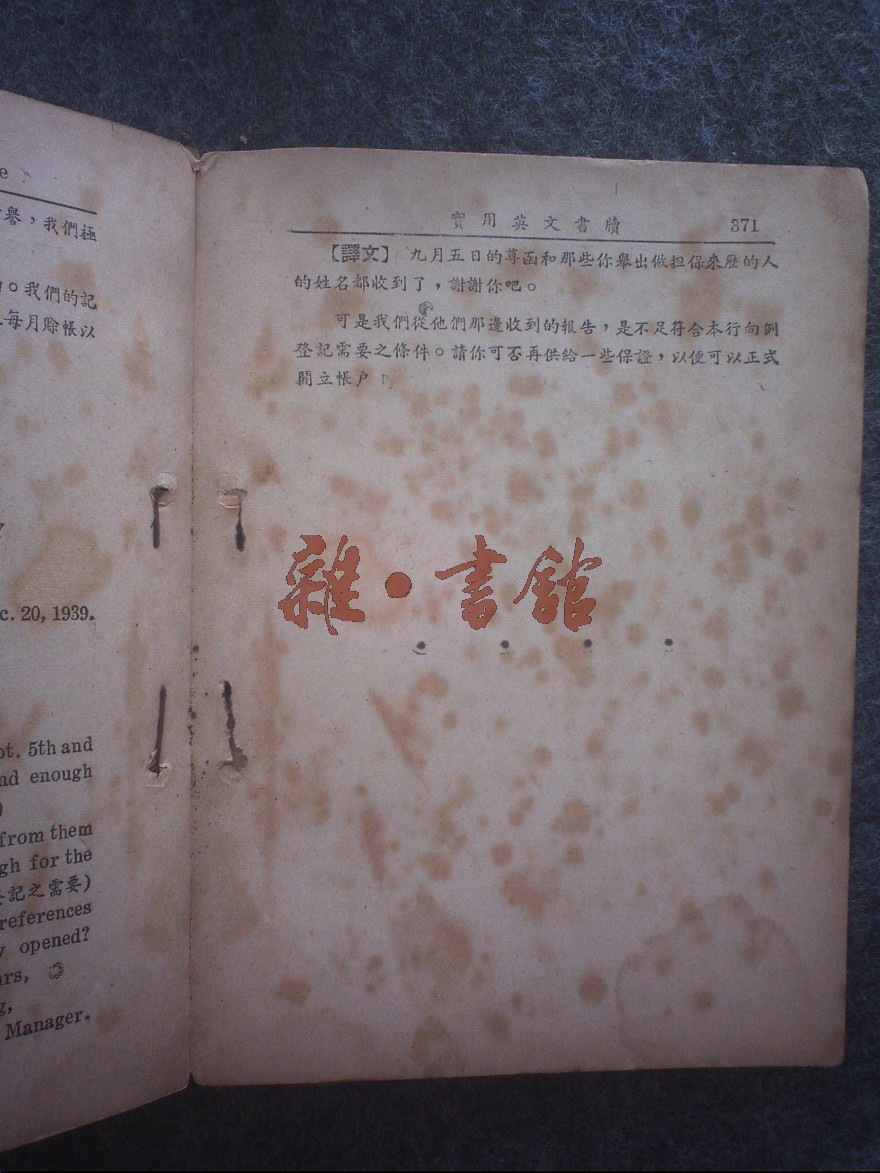 譽，我們極
。我們的記
每月賒帳以
c. 20, 1939.
pt. 5th and
nd enough
)
from them
gh for the
登記之需要)
references
opened?
rs,
g,
Manager.
實用英文書牘 371
【譯文】 九月五日的尊函和那些你舉出做担保來歷的人
的姓名都收到了，謝謝你吧。
可是我們從他們那邊收到的報告，是不足符合本行向例
登記需要之條件。請你可否再供給一些保證，以便可以正式
開立帳户
雜·書館